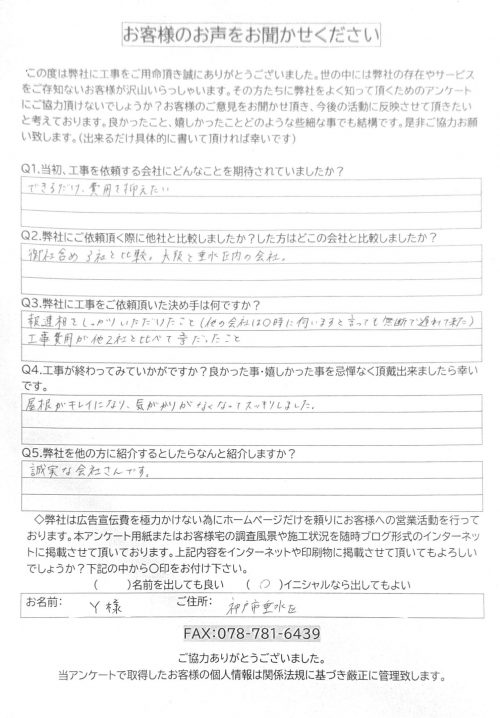 お客様のお声をお聞かせください
この度は弊社に工事をご用命頂き誠にありがとうございました。世の中には弊社の存在やサービス
をご存知ないお客様が沢山いらっしゃいます。その方たちに弊社をよく知って頂くためのアンケート
にご協力頂けないでしょうか?お客様のご意見をお聞かせ頂き、今後の活動に反映させて頂きたい
と考えております。良かったこと、嬉しかったことどのような些細な事でも結構です。是非ご協力お願
い致します。(出来るだけ具体的に書いて頂ければ幸いです)
Q1.当初、工事を依頼する会社にどんなことを期待されていましたか?
できるだけ、費用を抑えたい
Q2.弊社にご依頼頂く際に他社と比較しましたか?した方はどこの会社と比較しましたか?
御社含め3社と比較。大阪と垂水区内の会社。
Q3.弊社に工事をご依頼頂いた決め手は何ですか?
報連相をしっかりいただけたこと(他の会社は○時に伺いますと言っても無断で遅れて来た)
工事費用が他2社と比べて安だったこと
Q4.工事が終わってみていかがですか?良かった事・嬉しかった事を忌憚なく頂戴出来ましたら幸い
です。
屋根がキレイになり、気がかりがなくなってスッキリしました。
Q5.弊社を他の方に紹介するとしたらなんと紹介しますか?
誠実な会社さんです。
◇弊社は広告宣伝費を極力かけない為にホームページだけを頼りにお客様への営業活動を行って
おります。本アンケート用紙またはお客様宅の調査風景や施工状況を随時ブログ形式のインターネッ
トに掲載させて頂いております。上記内容をインターネットや印刷物に掲載させて頂いてもよろしい
でしょうか?下記の中から○印をお付け下さい。
( )名前を出しても良い (○)イニシャルなら出してもよい
お名前: Y様 ご住所: 神戸市垂水区
FAX:078-781-6439
ご協力ありがとうございました。
当アンケートで取得したお客様の個人情報は関係法規に基づき厳正に管理致します。